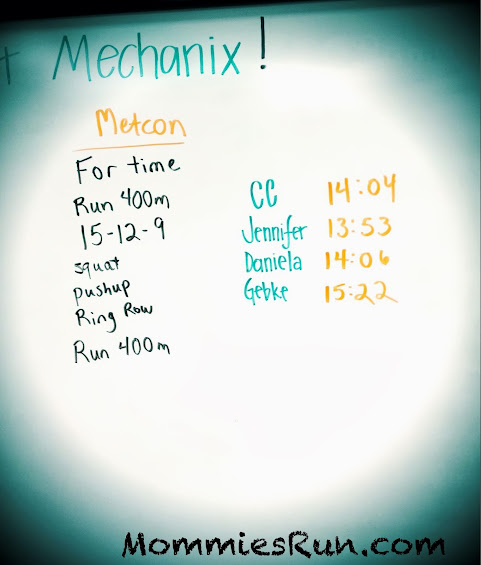 t Mechanix!
Metcon
For time
Run 400m
15-12-9
squat
pushup
Ring Row
Run 400m
CC 14:04
Jennifer 13:53
Daniela 14:06
Gebke 15:22
MommiesRun.com